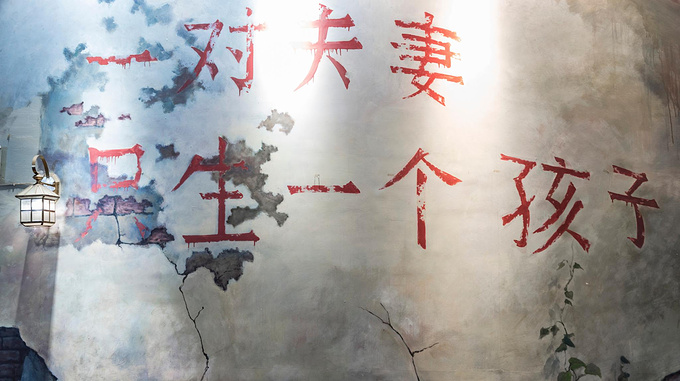 一对夫妻
只生一个孩子